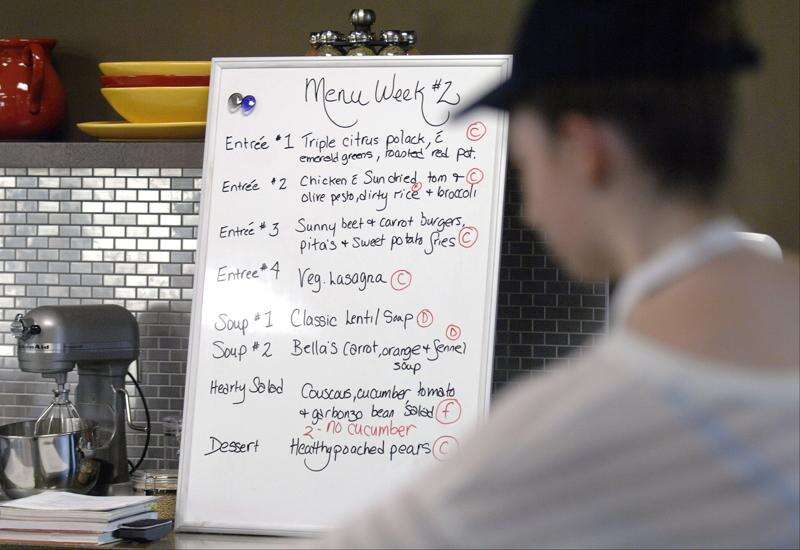 Menu Week #2
Entrée #1 Triple citrus polack, & Ⓒ
emerald greens, roasted red pot.
Entrée #2 Chicken & Sun dried tom & Ⓒ
olive pesto, dirty rice + broccoli
Entrée #3 Sunny beet + carrot burgers,
pita's + sweet potato fries Ⓒ
Entree #4 Veg. Lasagna Ⓒ
Soup #1 Classic Lentil Soup Ⓓ
Soup #2 Bella's carrot, orange + fennel Ⓓ
soup
Hearty Salad Couscous, cucumber tomato
+ garbonzo bean salad ⓕ
2 - no cucumber
Dessert Healthy poached pears Ⓒ
KitchenAid